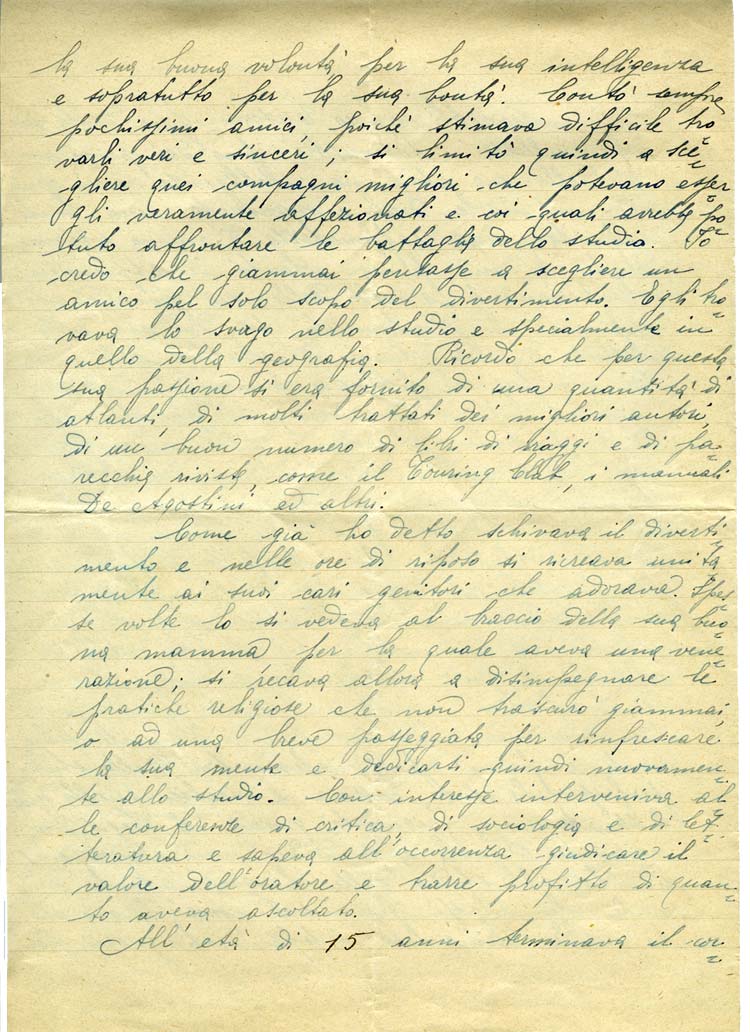 la sua buona volontà, per la sua intelligenza
e sopratutto per la sua bontà. Contò sempre
pochissimi amici, poichè stimava difficile tro
varli veri e sinceri; si limitò quindi a sce=
gliere quei compagni migliori che potevano esser
gli veramente affezionati e coi quali avrebbe po=
tuto affrontare le battaglie dello studio. Io
credo che giammai pensasse a scegliere un
amico pel solo scopo del divertimento. Egli tro=
vava lo svago nello studio e specialmente in
quello della geografia. Ricordo che per questa
sua passione si era fornito di una quantità di
atlanti, di molti trattati dei migliori autori,
di un buon numero di libri di viaggi e di pa=
recchie riviste, come il Touring Club, i manuali
De Agostini ed altri.
Come già ho detto schivava il diverti=
mento e nelle ore di riposo si ricreava unita
mente ai suoi cari genitori che adorava. Spes=
se volte lo si vedeva al braccio della sua buo=
na mamma per la quale aveva una vene=
razione; si recava allora a disimpegnare le
pratiche religiose che non trascurò giammai,
o ad una breve passeggiata per rinfrescare
la sua mente e dedicarsi quindi nuovamen=
te allo studio. Con interesse interveniva al=
le conferenze di critica, di sociologia e di let=
teratura e sapeva all'occorrenza giudicare il
valore dell'oratore e trarre profitto di quan=
to aveva ascoltato.
All'età di 15 anni terminava il cor=